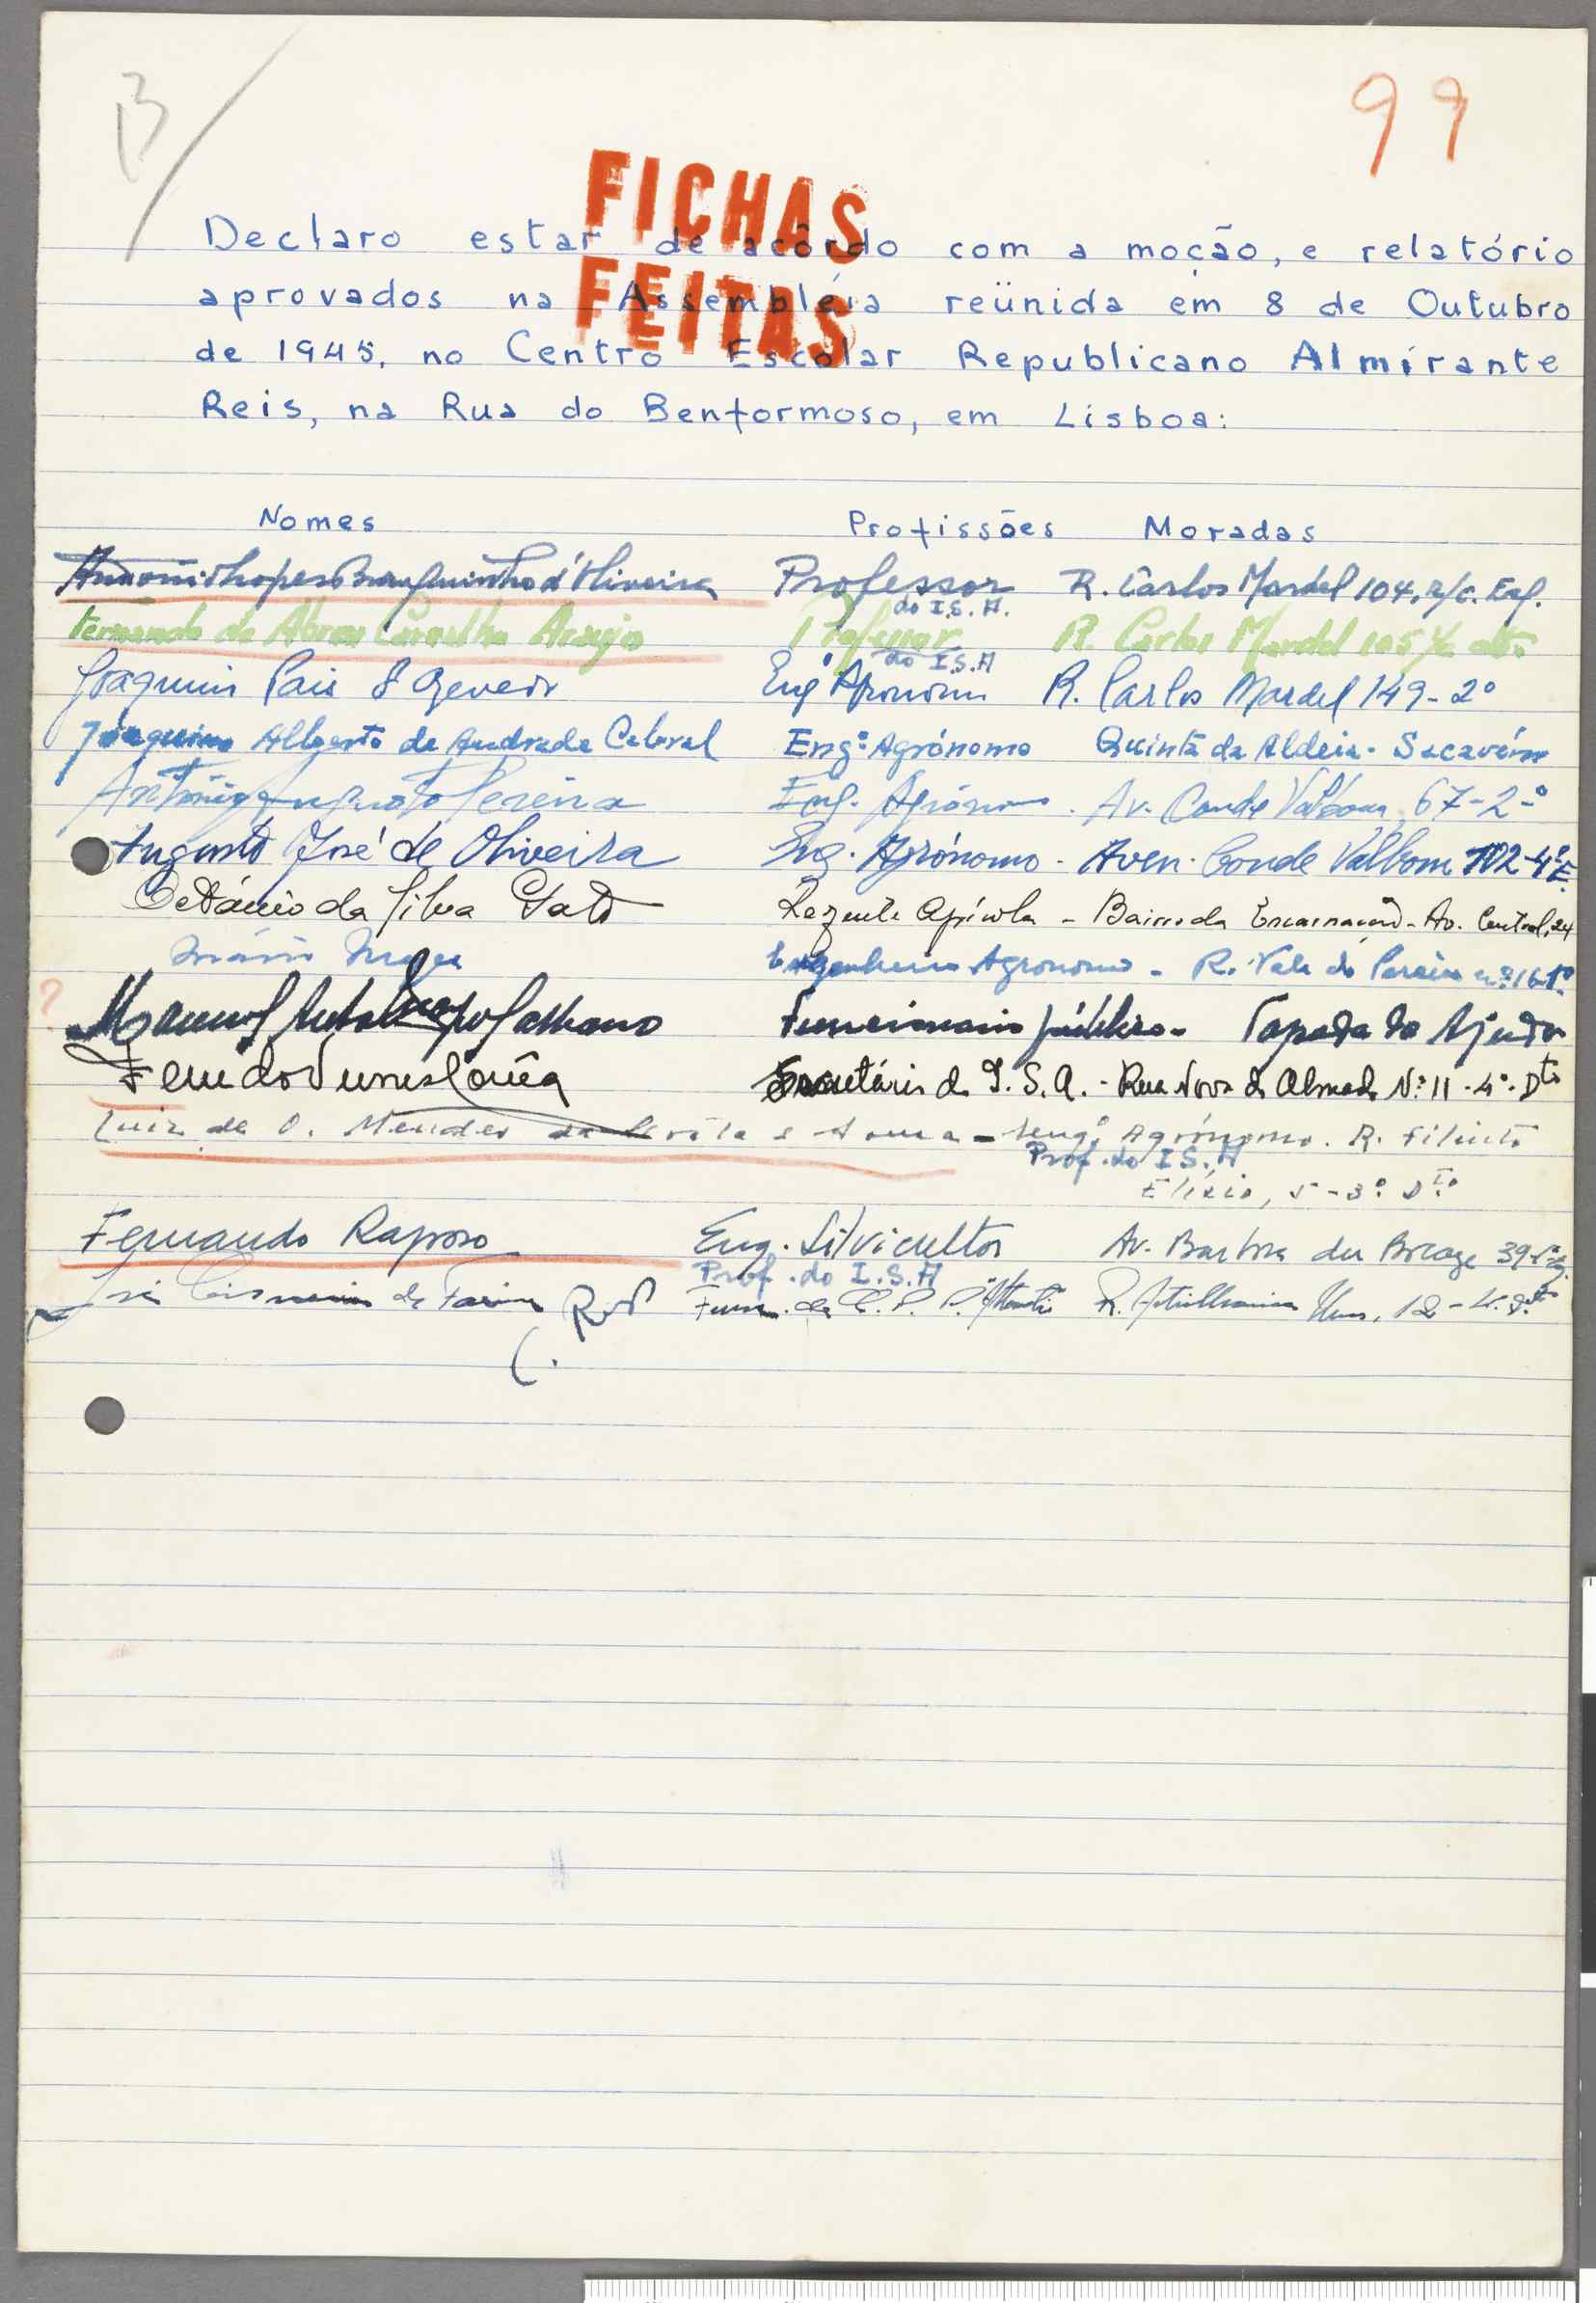 B
99
FICHAS
FEITAS
Declaro estar de acôrdo com a moção, e relatório
aprovados na Assembléia reünida em 8 de Outubro
de 1945, no Centro Escolar Republicano Almirante
Reis, na Rua do Benformoso, em Lisboa:
Nomes Profissões Moradas
António Lopes Branquinho d'Oliveira Professor R. Carlos Mardel 104, r/c. Esq.
do I.S.A.
Fernando de Abreu Carvalho Araujo Professor R. Carlos Mardel 105
do I.S.A
Joaquim Pais d'Azevedo Engº Agronomo R. Carlos Mardel 149-2º
Joaquim Alberto de Andrade Cabral Engº Agrónomo Quinta da Aldeia - Sacavém
António Augusto Pereira Eng. Agrónomo. Av. Conde Valbom, 67-2º
Augusto José de Oliveira Eng. Agrónomo - Aven. Conde Valbom 102-4º E.
Octávio da Silva Gato Regente Agrícola - Bairro da Encarnação - Av. Central, 24
Mário Engenheiro Agronomo - R. Vale do Pereiro nº 16-1º
?
Manuel Funcionario público - Tapada da Ajuda
Secretário do I.S.A. - Rua Nova do Almada Nº 11-4º-Dto
Luiz de O. Mendes - Engº Agrónomo. R. Filinto
Prof. do I.S.A
Elísio, 5-3º Dto
Fernando Raposo Eng. Silvicultor Av. Barbosa du Bocage 39
Prof. do I.S.A
José de Faria Func. da R. Artilharia Um, 12-4º